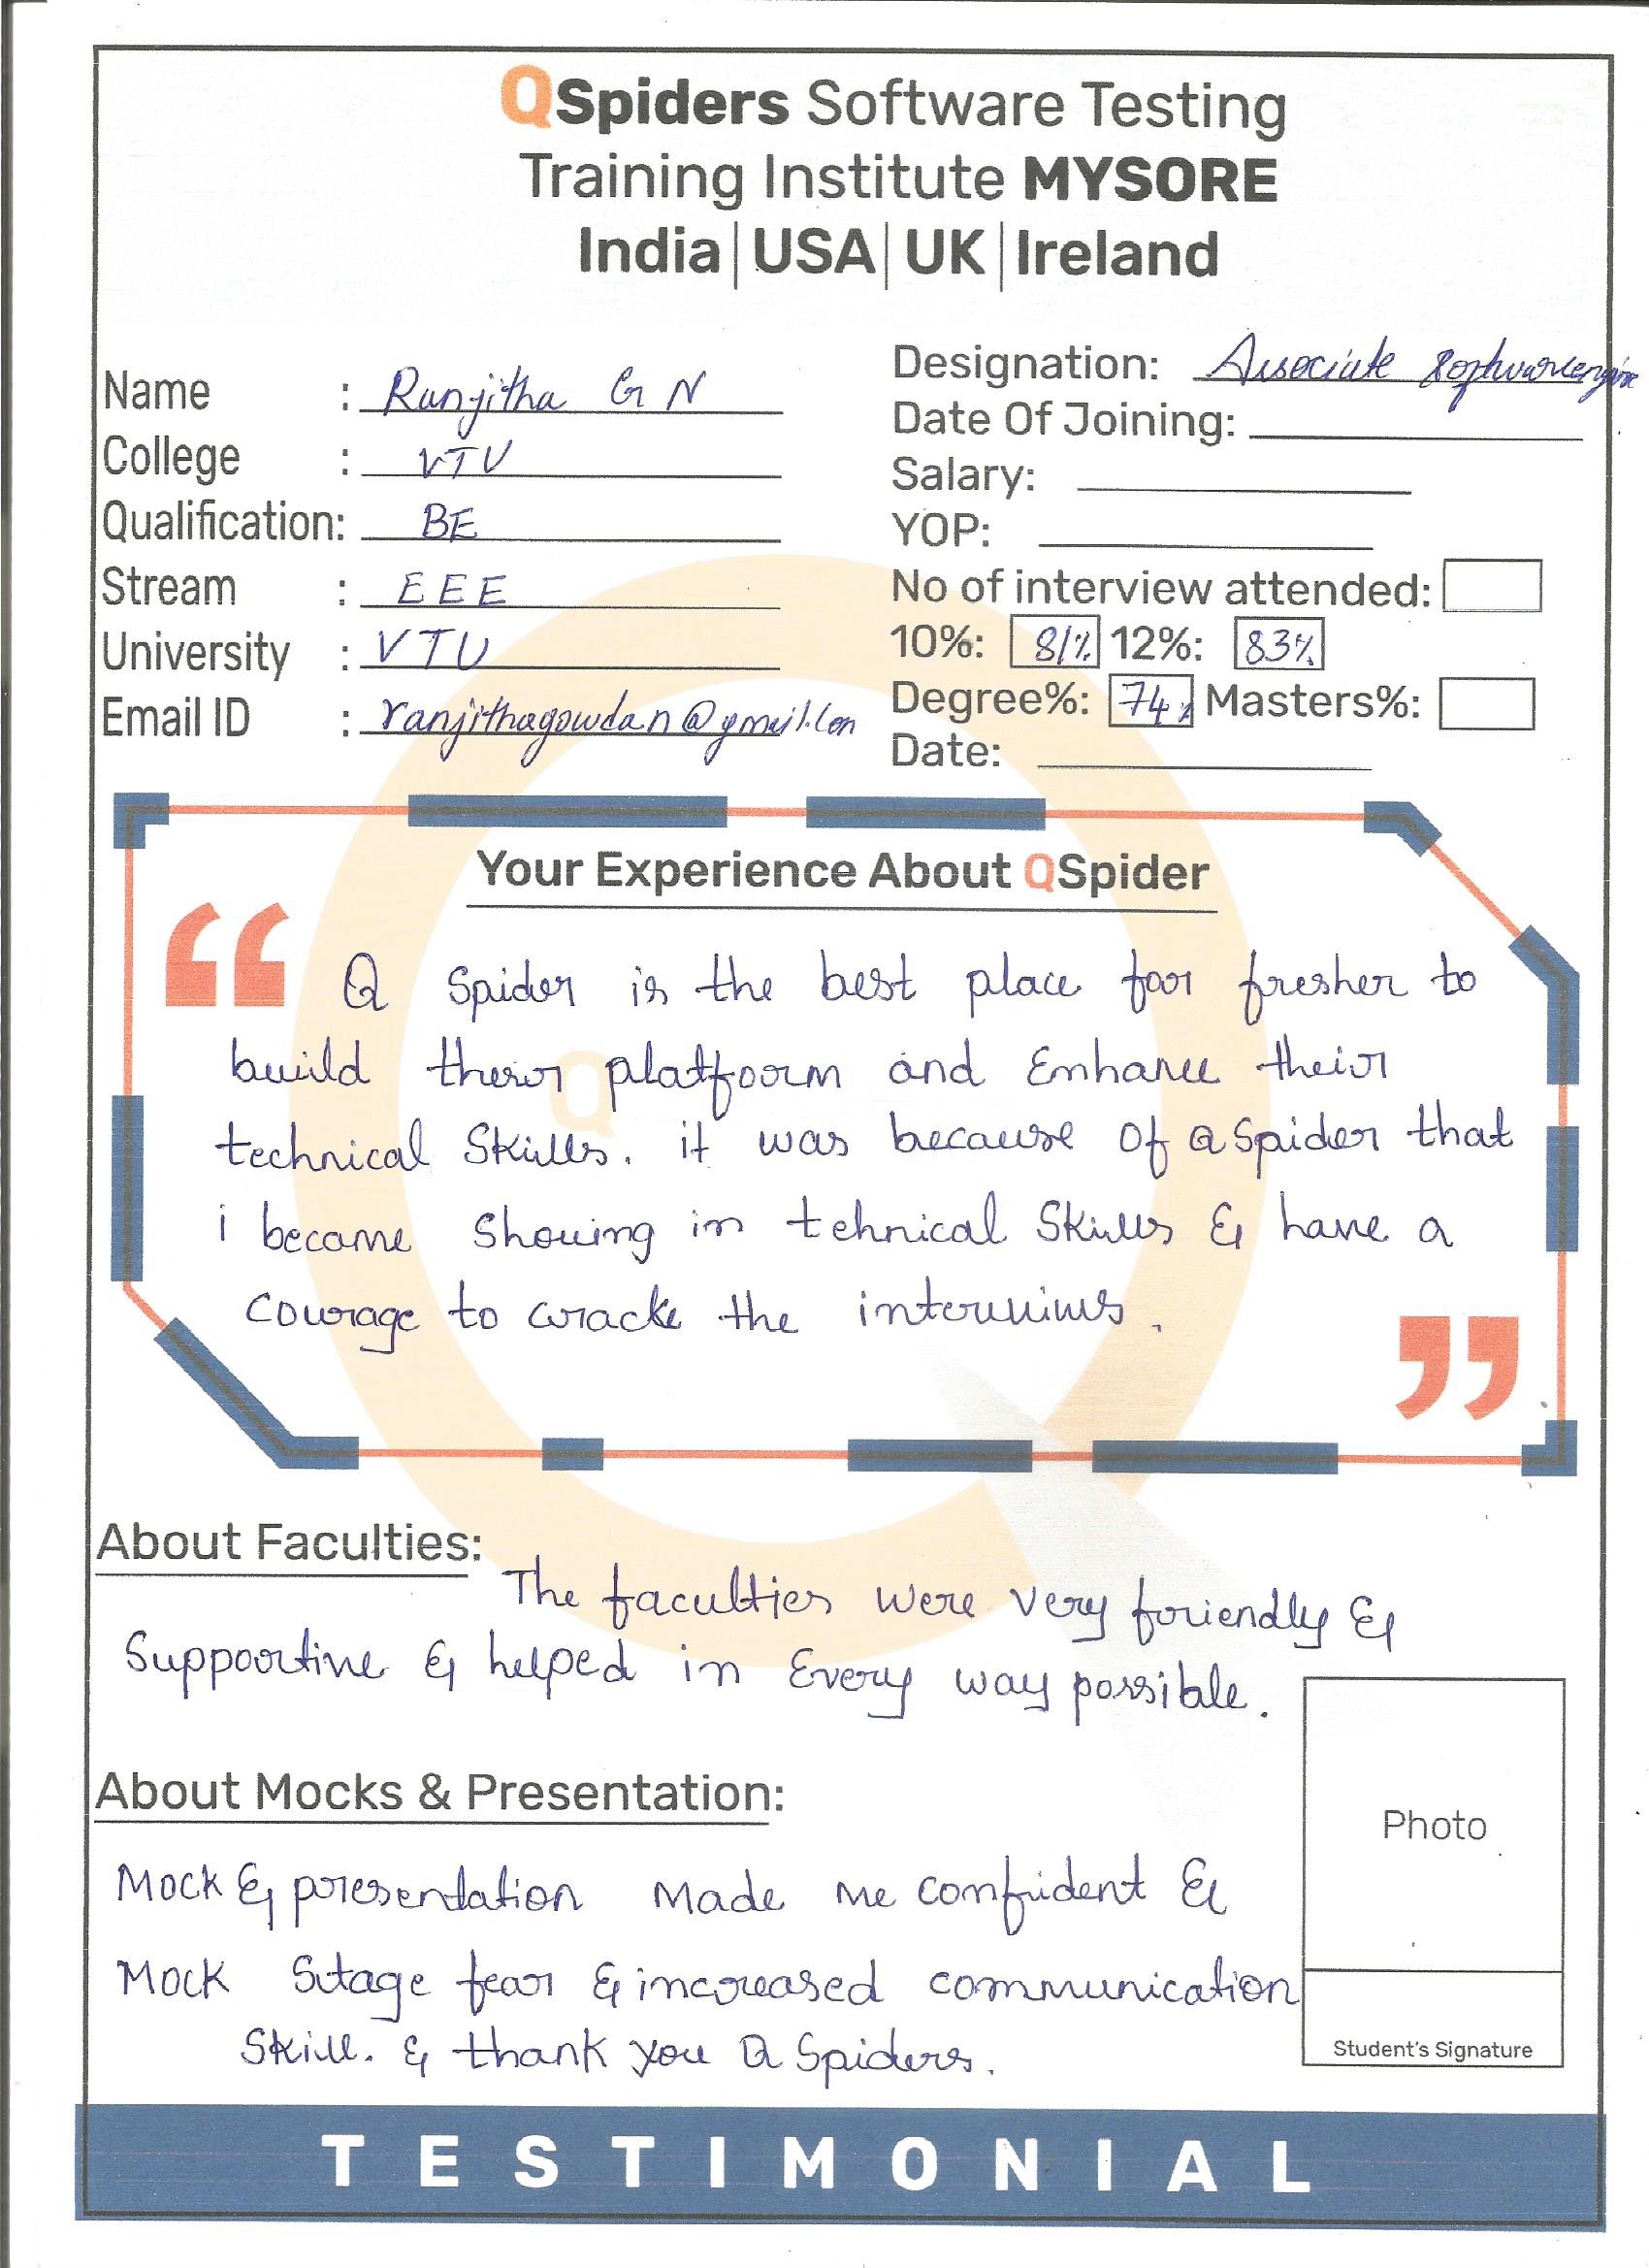 QSpiders Software Testing
Training Institute MYSORE
India | USA | UK | Ireland
Name : Ranjitha G N
College : VTU
Qualification: BE
Stream : EEE
University : VTU
Email ID : ranjithagowdan@gmail.com
Designation: Associate Softwareengine
Date Of Joining:
Salary:
YOP:
No of interview attended:
10%: 81% 12%: 83%
Degree%: 74% Masters%:
Date:
Your Experience About QSpider
Q Spider is the best place for fresher to
build their platform and Enhance their
technical Skills. it was because of Q Spider that
i became in tehnical Skills & have a
courage to cracke the
About Faculties:
The faculties were very friendly &
Supportive & helped in Every way possible.
About Mocks & Presentation:
Mock & presentation Made me confident &
Mock Stage fear & increased communication
Skill. & thank you Q Spiders.
Photo
Student's Signature
TESTIMONIAL